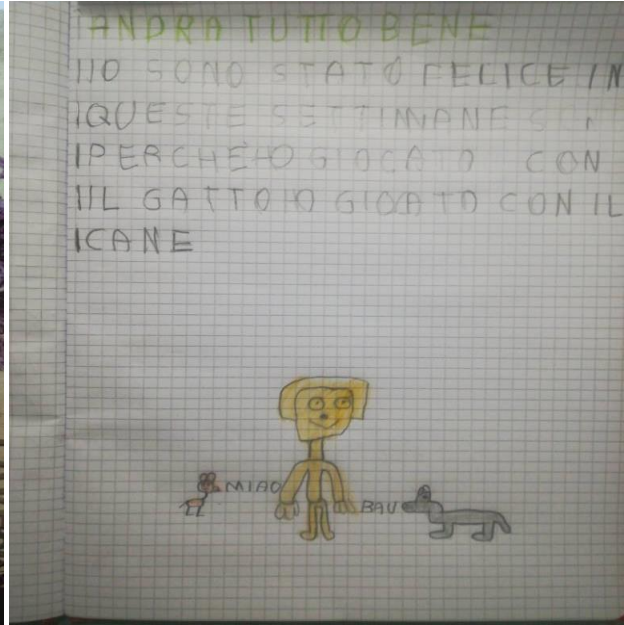 ANDRA TUTTO BENE
IO SONO STATO FELICE IN
QUESTE SETTIMANE
PERCHE HO GIOCATO CON
IL GATTO HO GIOCATO CON IL
CANE
MIAO
BAU